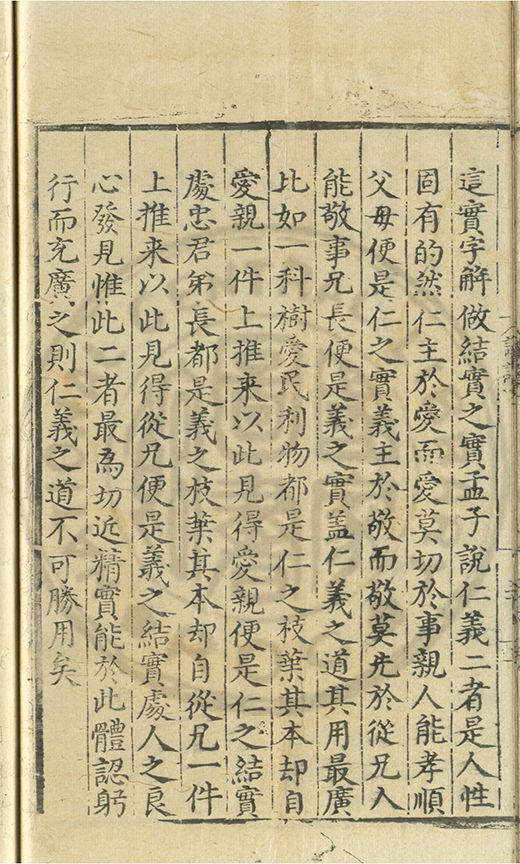 這實字解做結實之實孟子說仁義二者是人性
固有的然仁主於愛而愛莫切於事親人能孝順
父母便是仁之實義主於敬而敬莫先於從兄人
能敬事兄長便是義之實盖仁義之道其用最廣
比如一科樹愛民利物都是仁之枝葉其本却自
愛親一件上推来以此見得愛親便是仁之結實
處忠君弟長都是義之枝葉其本却自從兄一件
上推来以此見得從兄便是義之結實處人之良
心發見惟此二者最為切近精實能於此體認躬
行而充廣之則仁義之道不可勝用矣